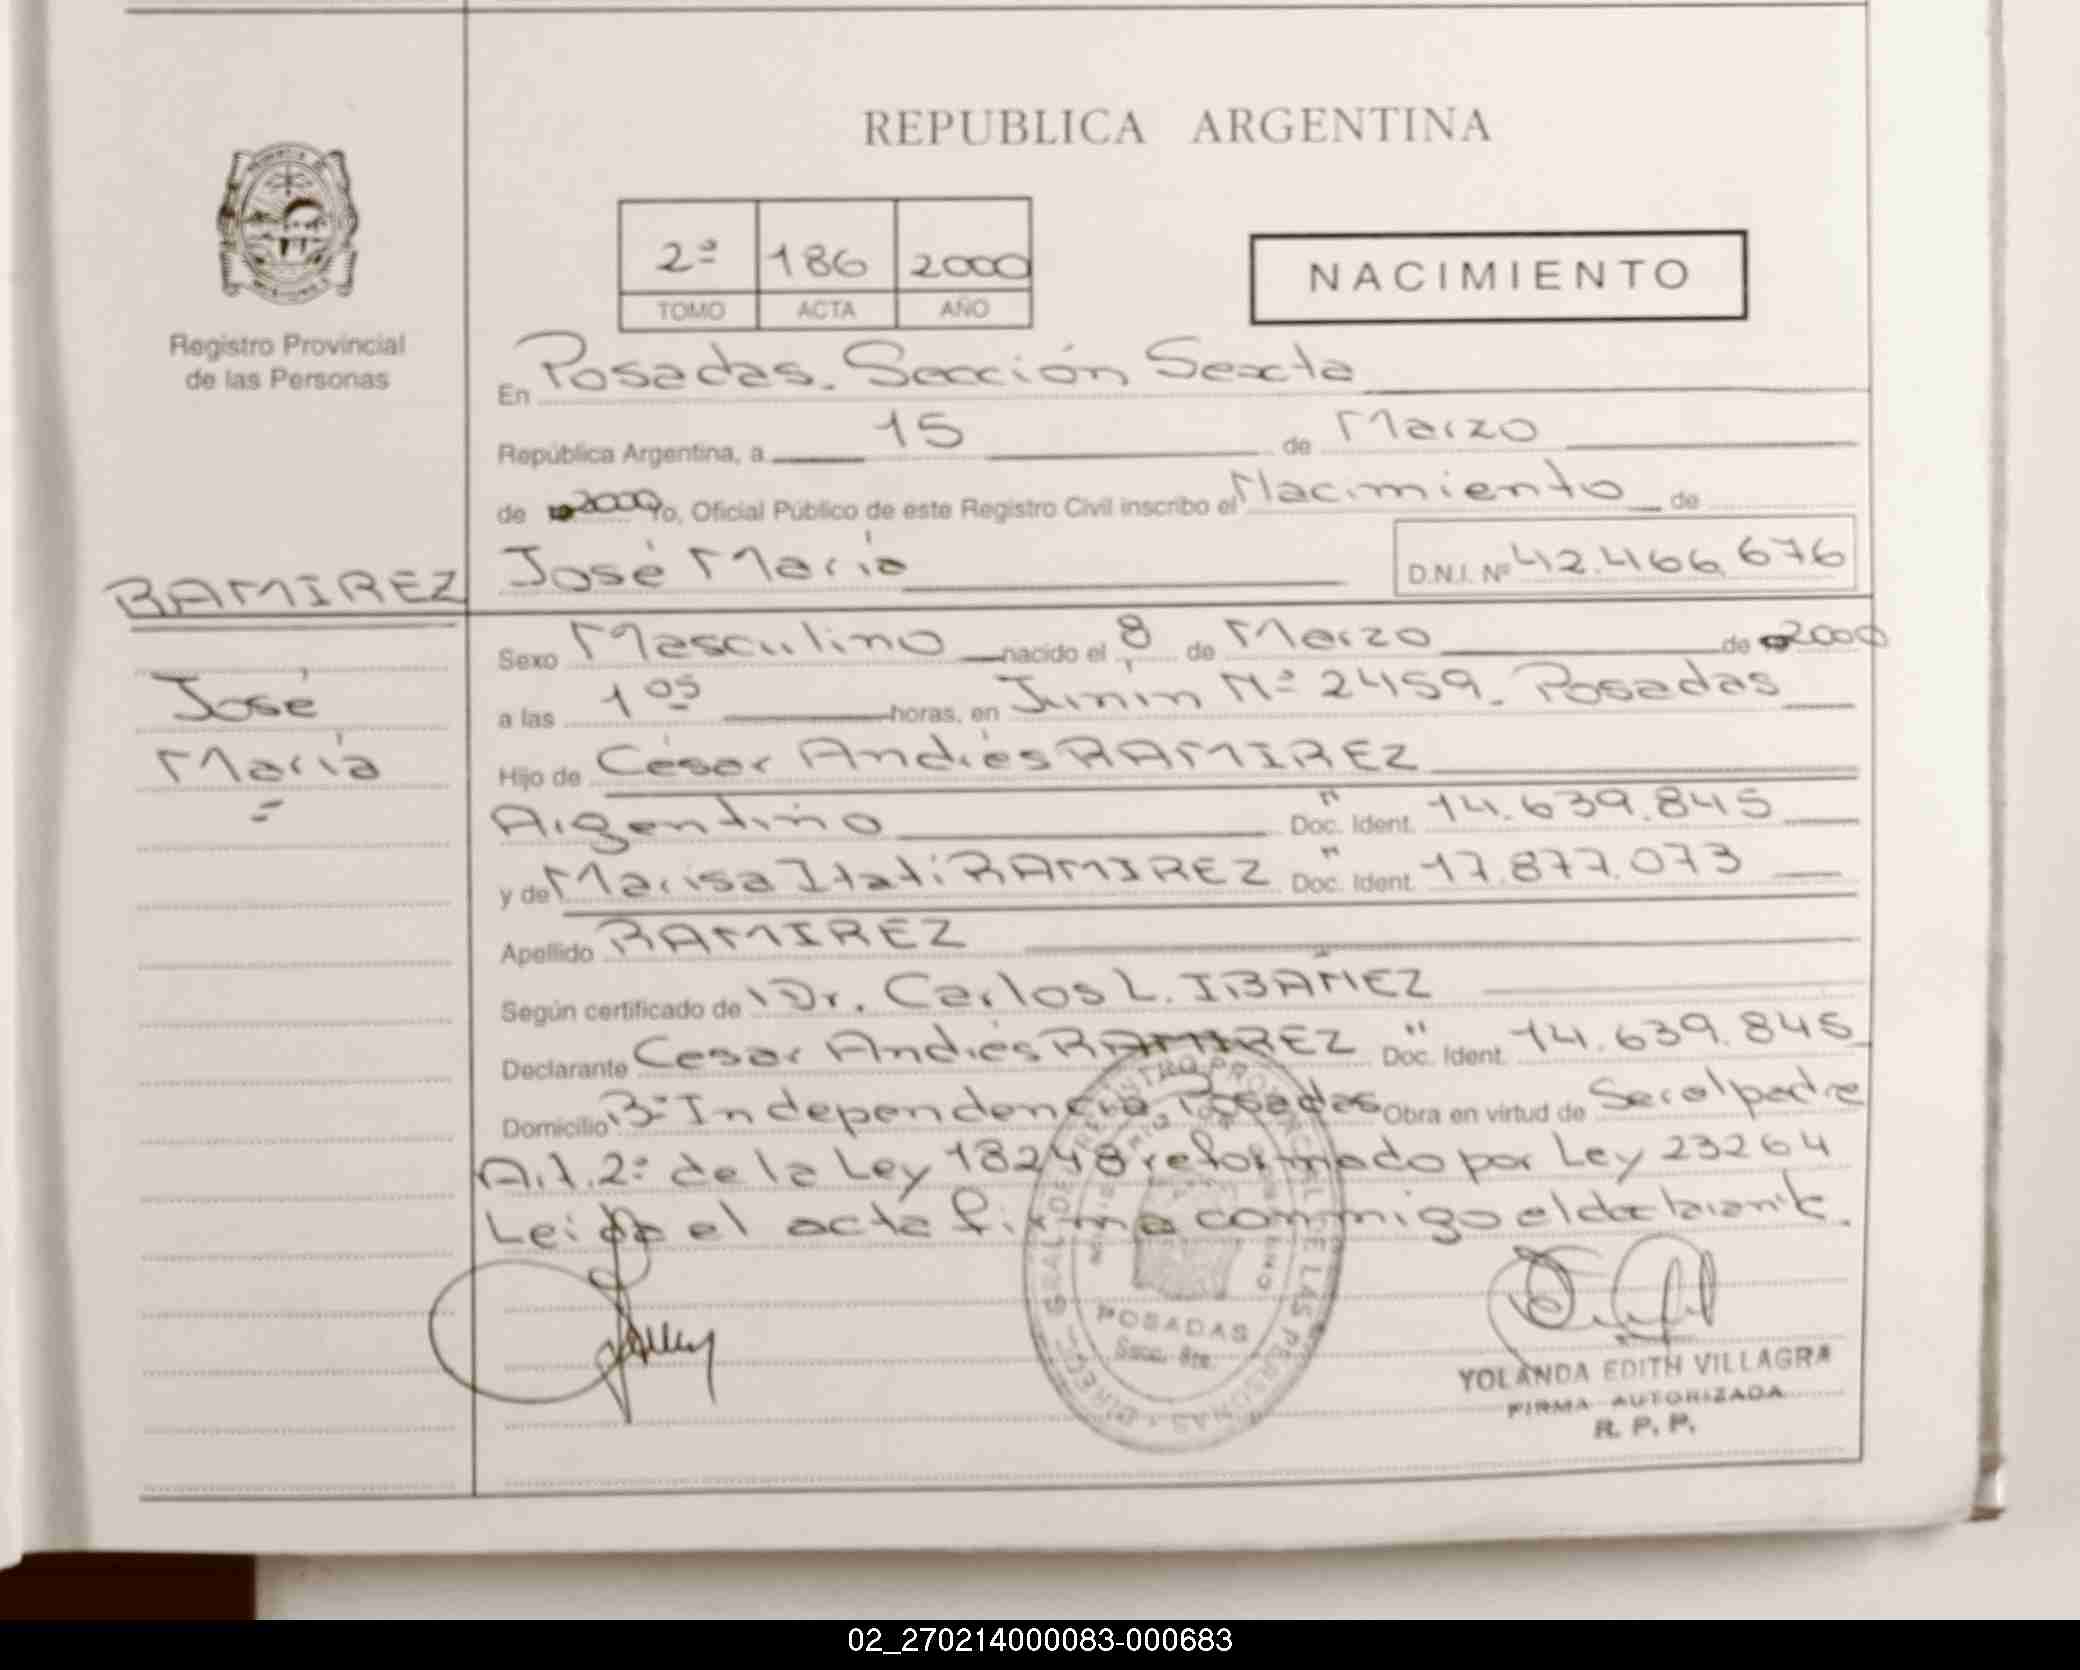 REPUBLICA ARGENTINA
Registro Provincial
de las Personas
2º 186 2000
TOMO ACTA AÑO
NACIMIENTO
En Posadas. Sección Sexta
República Argentina, a 15 de Marzo
de 2000 Yo, Oficial Público de este Registro Civil inscribo el Nacimiento de
José María D.N.I. Nº 42.466.676
RAMIREZ
José
María
Sexo Masculino nacido el 8 de Marzo de 2000
a las 1 05 horas, en Junín Nº 2459. Posadas
Hijo de César Andrés RAMIREZ
Argentino Doc. Ident. " 14.639.845
y de Marisa Itatí RAMIREZ Doc. Ident. " 17.877.073
Apellido RAMIREZ
Según certificado de Dr. Carlos L. IBAÑEZ
Declarante Cesar Andrés RAMIREZ Doc. Ident. " 14.639.845
Domicilio Bº Independencia, Posadas Obra en virtud de Ser el padre
Art. 2º de la Ley 18248 reformado por Ley 23264
Leida el acta firma conmigo el declarante.
POSADAS
YOLANDA EDITH VILLAGRA
FIRMA AUTORIZADA
R. P. P.
02_270214000083-000683